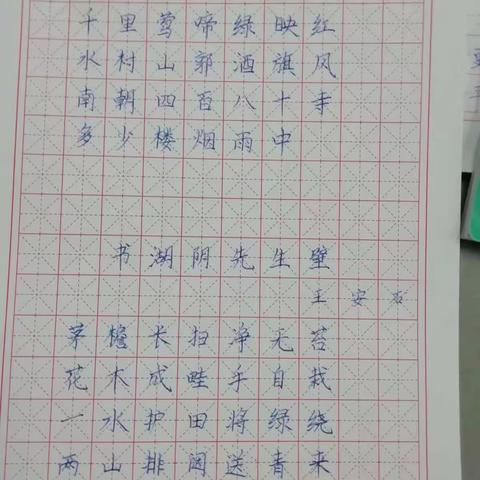 千里莺啼绿映红
水村山郭酒旗风
南朝四百八十寺
多少楼烟雨中
书湖阴先生壁
王安石
茅檐长扫净无苔
花木成畦手自栽
一水护田将绿绕
两山排闼送青来